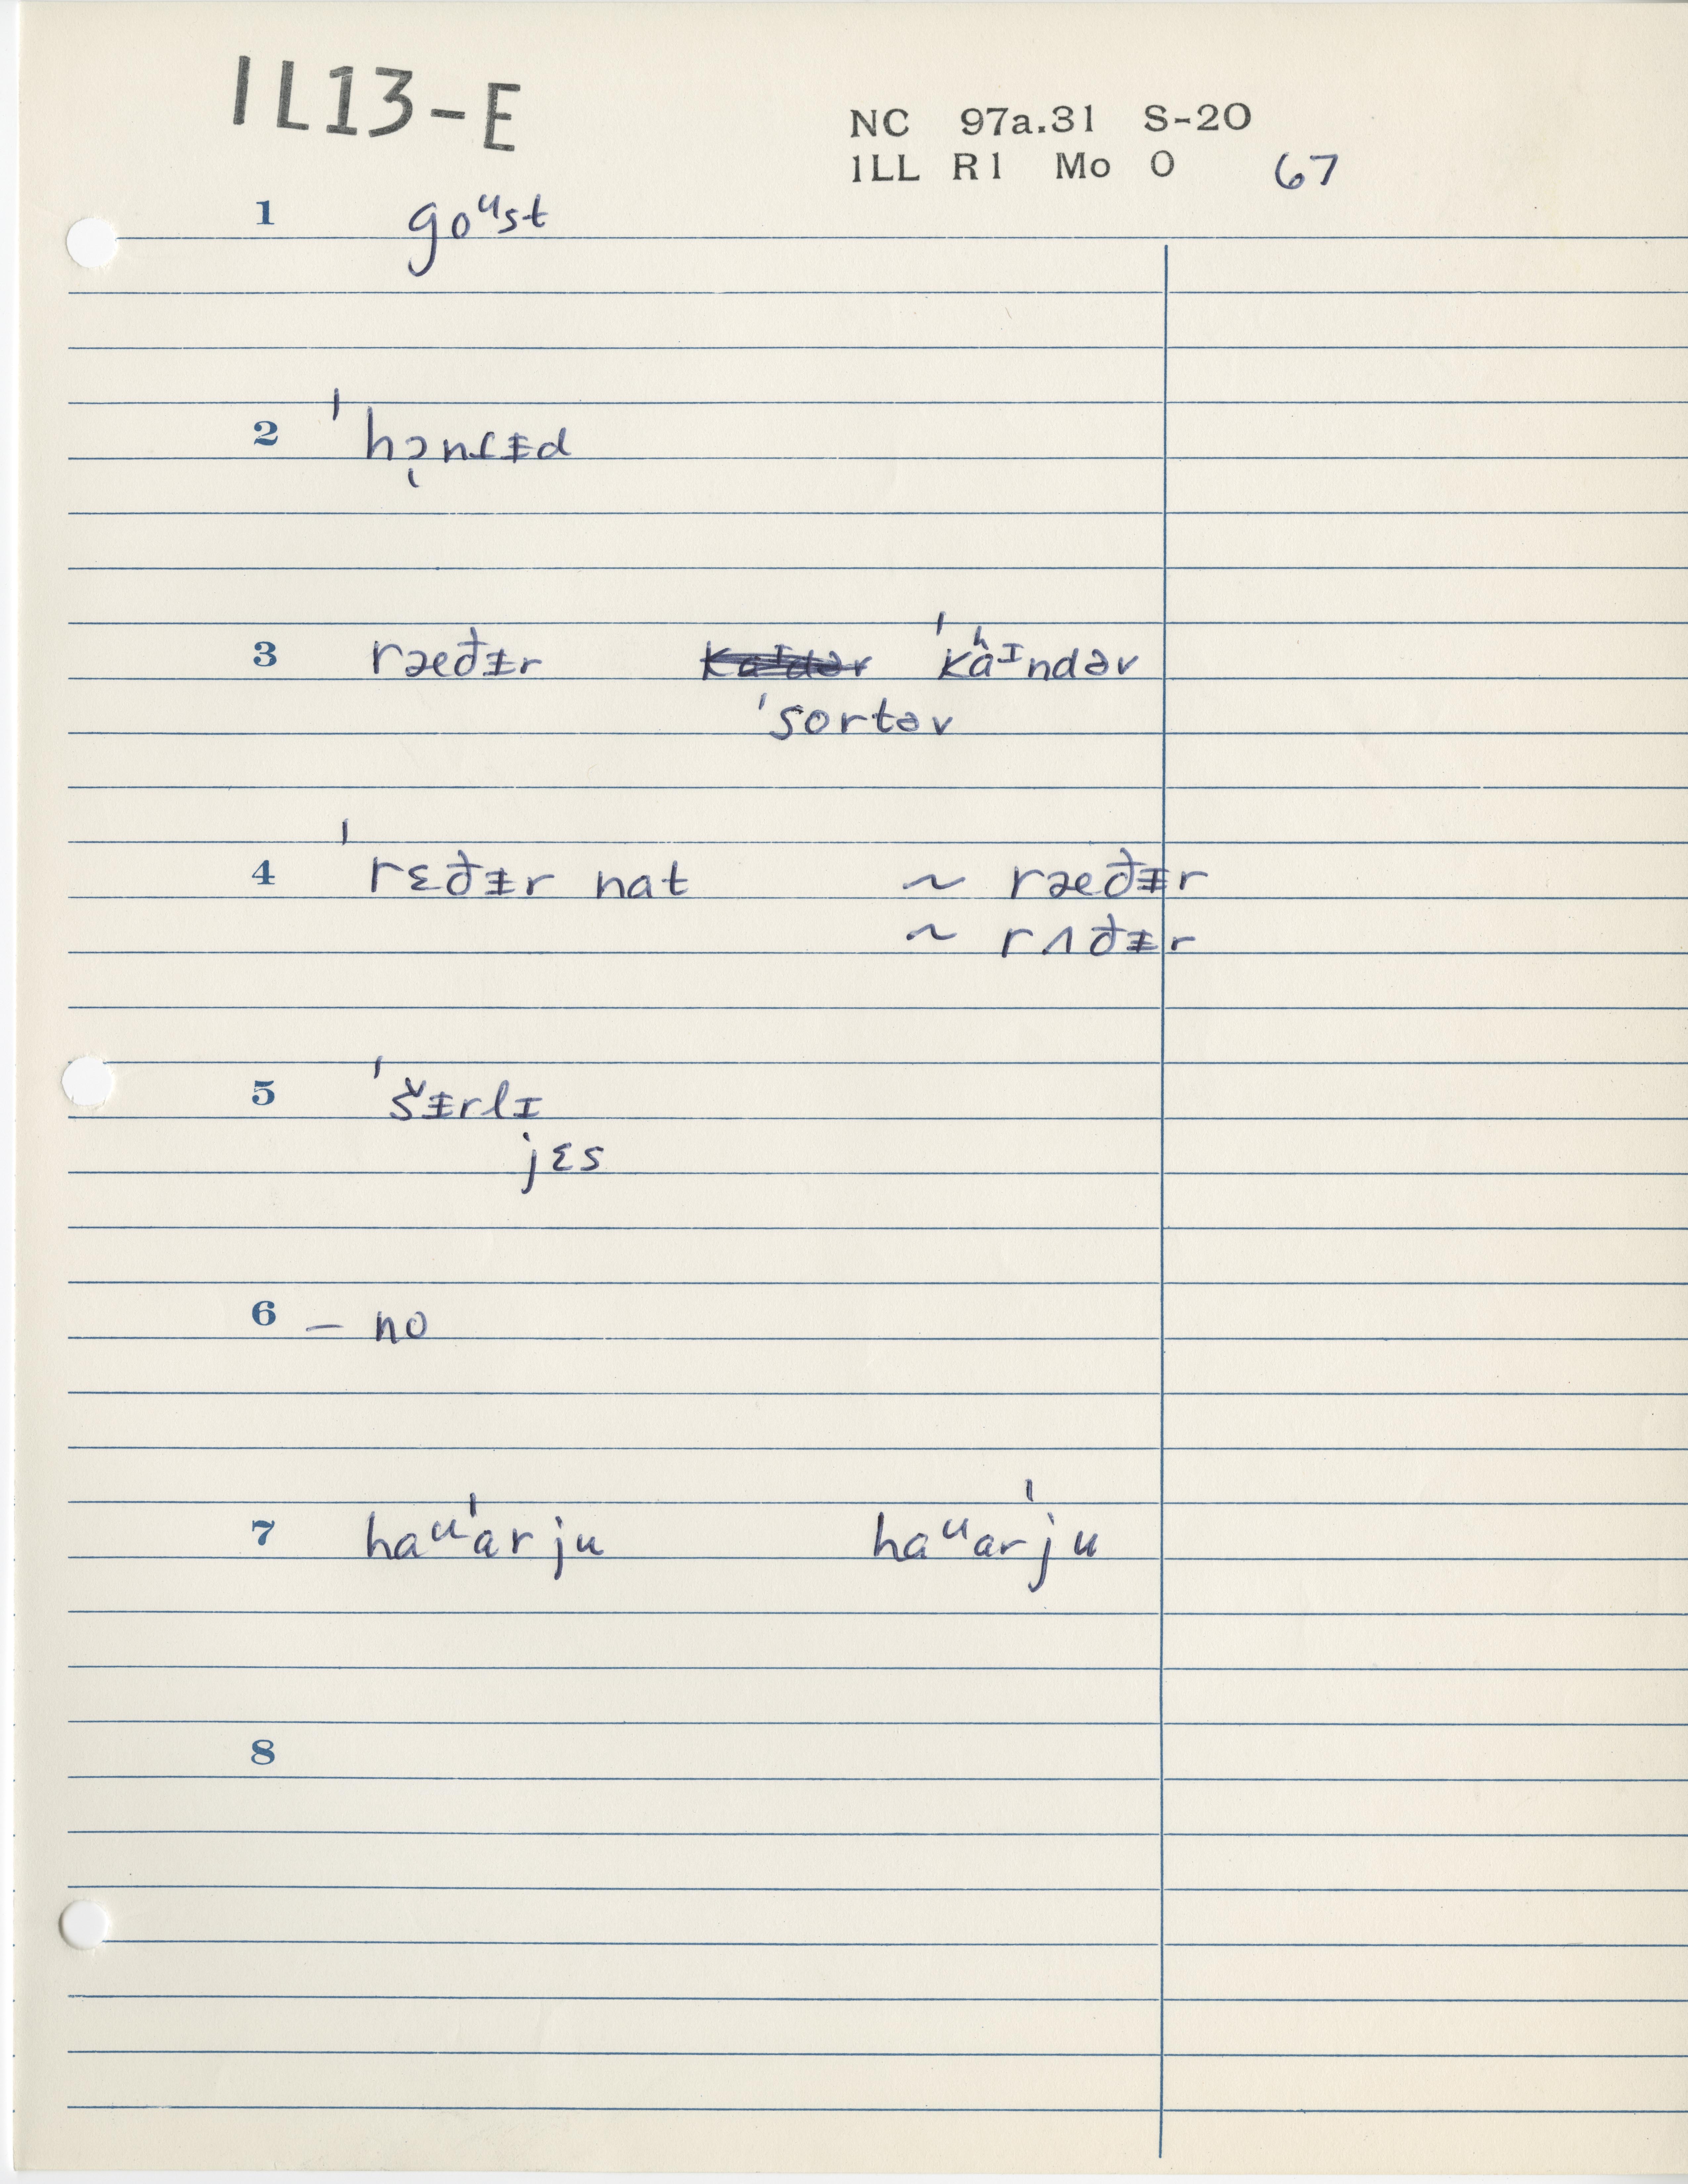 IL13-E
NC 97a.31 S-20
ILL R1 Mo O 67
1 goᵘst
2 ˈhɔ̜nt̵ᵻd
3 ræðᵻr ˈkʰaᶦndəv
ˈsortəv
4 ˈrɛðᵻr nat ~ ræðᵻr
~ rʌðᵻr
5 ˈšᵻrlɪ
jɛs
6 – no
7 haᵘˈar ju haᵘarˈju
8